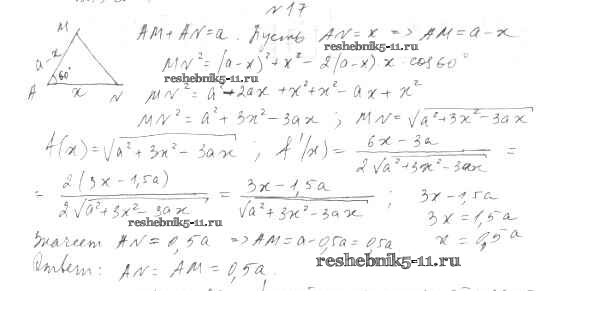 № 17
M
a-x
60°
A x N
AM + AN = a. Пусть AN = x => AM = a - x
reshebnik5-11.ru
MN² = (a-x)² + x² - 2(a-x)·x·cos 60°
reshebnik5-11.ru
MN² = a² - 2ax + x² + x² - ax + x²
MN² = a² + 3x² - 3ax ; MN = √(a² + 3x² - 3ax)
f(x) = √(a² + 3x² - 3ax) ; f'(x) = (6x - 3a)/(2√(a² + 3x² - 3ax)) =
= 2(3x - 1,5a)/(2√(a² + 3x² - 3ax)) = (3x - 1,5a)/√(a² + 3x² - 3ax) ; 3x - 1,5a
3x = 1,5a
reshebnik5-11.ru
x = 0,5a
Значит AN = 0,5a => AM = a - 0,5a = 0,5a
Ответ: AN = AM = 0,5a.
reshebnik5-11.ru